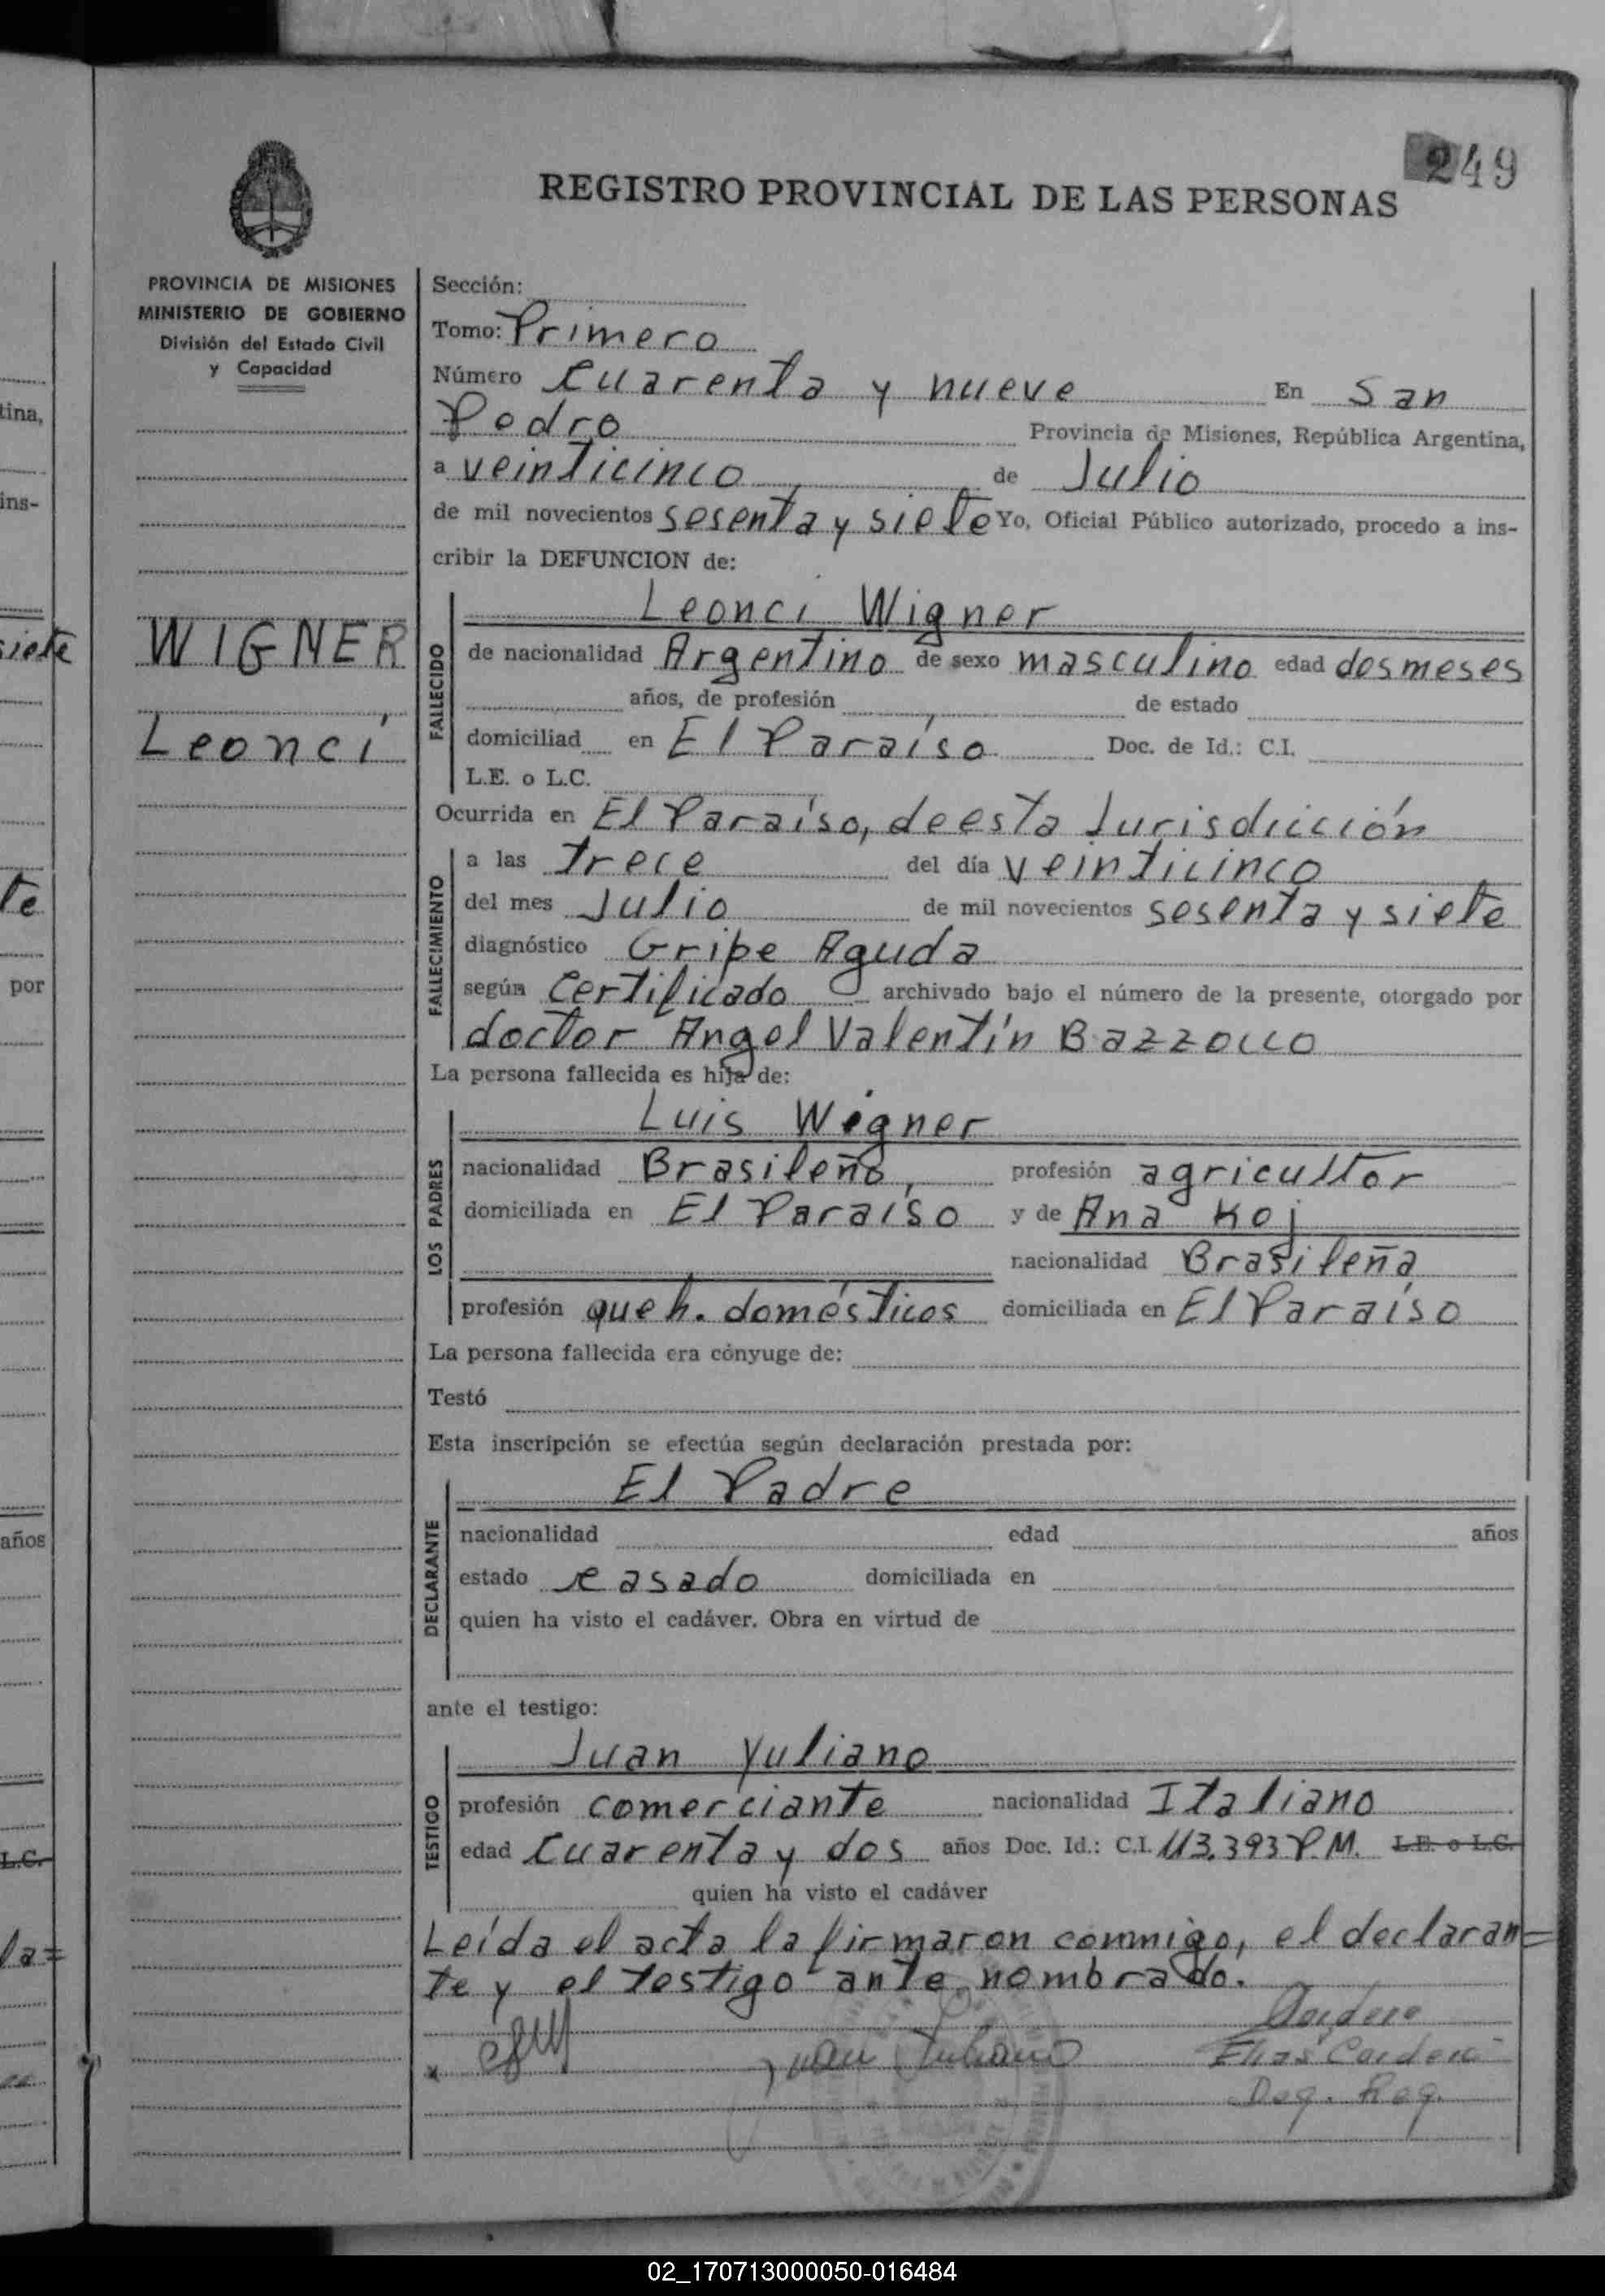 249
REGISTRO PROVINCIAL DE LAS PERSONAS
PROVINCIA DE MISIONES
MINISTERIO DE GOBIERNO
División del Estado Civil
y Capacidad
WIGNER
Leonci
Sección:
Tomo: Primero
Número Cuarenta y nueve En San
Pedro Provincia de Misiones, República Argentina,
a veinticinco de Julio
de mil novecientos sesenta y siete Yo, Oficial Público autorizado, procedo a ins-
cribir la DEFUNCION de:
FALLECIDO
Leonci Wigner
de nacionalidad Argentino de sexo masculino edad dos meses
años, de profesión de estado
domiciliad en El Paraíso Doc. de Id.: C.I.
L.E. o L.C.
Ocurrida en El Paraíso, de esta Jurisdicción
FALLECIMIENTO
a las trece del día veinticinco
del mes Julio de mil novecientos sesenta y siete
diagnóstico Gripe Aguda
según Certificado archivado bajo el número de la presente, otorgado por
doctor Angel Valentín Bazzocco
La persona fallecida es hija de:
LOS PADRES
Luis Wigner
nacionalidad Brasileño, profesión agricultor
domiciliada en El Paraíso y de Ana Koj
nacionalidad Brasileña
profesión queh. domésticos domiciliada en El Paraíso
La persona fallecida era cónyuge de:
Testó
Esta inscripción se efectúa según declaración prestada por:
DECLARANTE
El Padre
nacionalidad edad años
estado casado domiciliada en
quien ha visto el cadáver. Obra en virtud de
ante el testigo:
TESTIGO
Juan Yuliano
profesión comerciante nacionalidad Italiano
edad Cuarenta y dos años Doc. Id.: C.I. 113.393 P.M. L.E. o L.C.
quien ha visto el cadáver
Leída el acta la firmaron conmigo, el declaran=
te y el testigo ante nombrado.
Juan Juliano
Elias Cardero
Deg. Reg.
tina,
ins-
siete
te
por
años
L.C.
la=
02_170713000050-016484